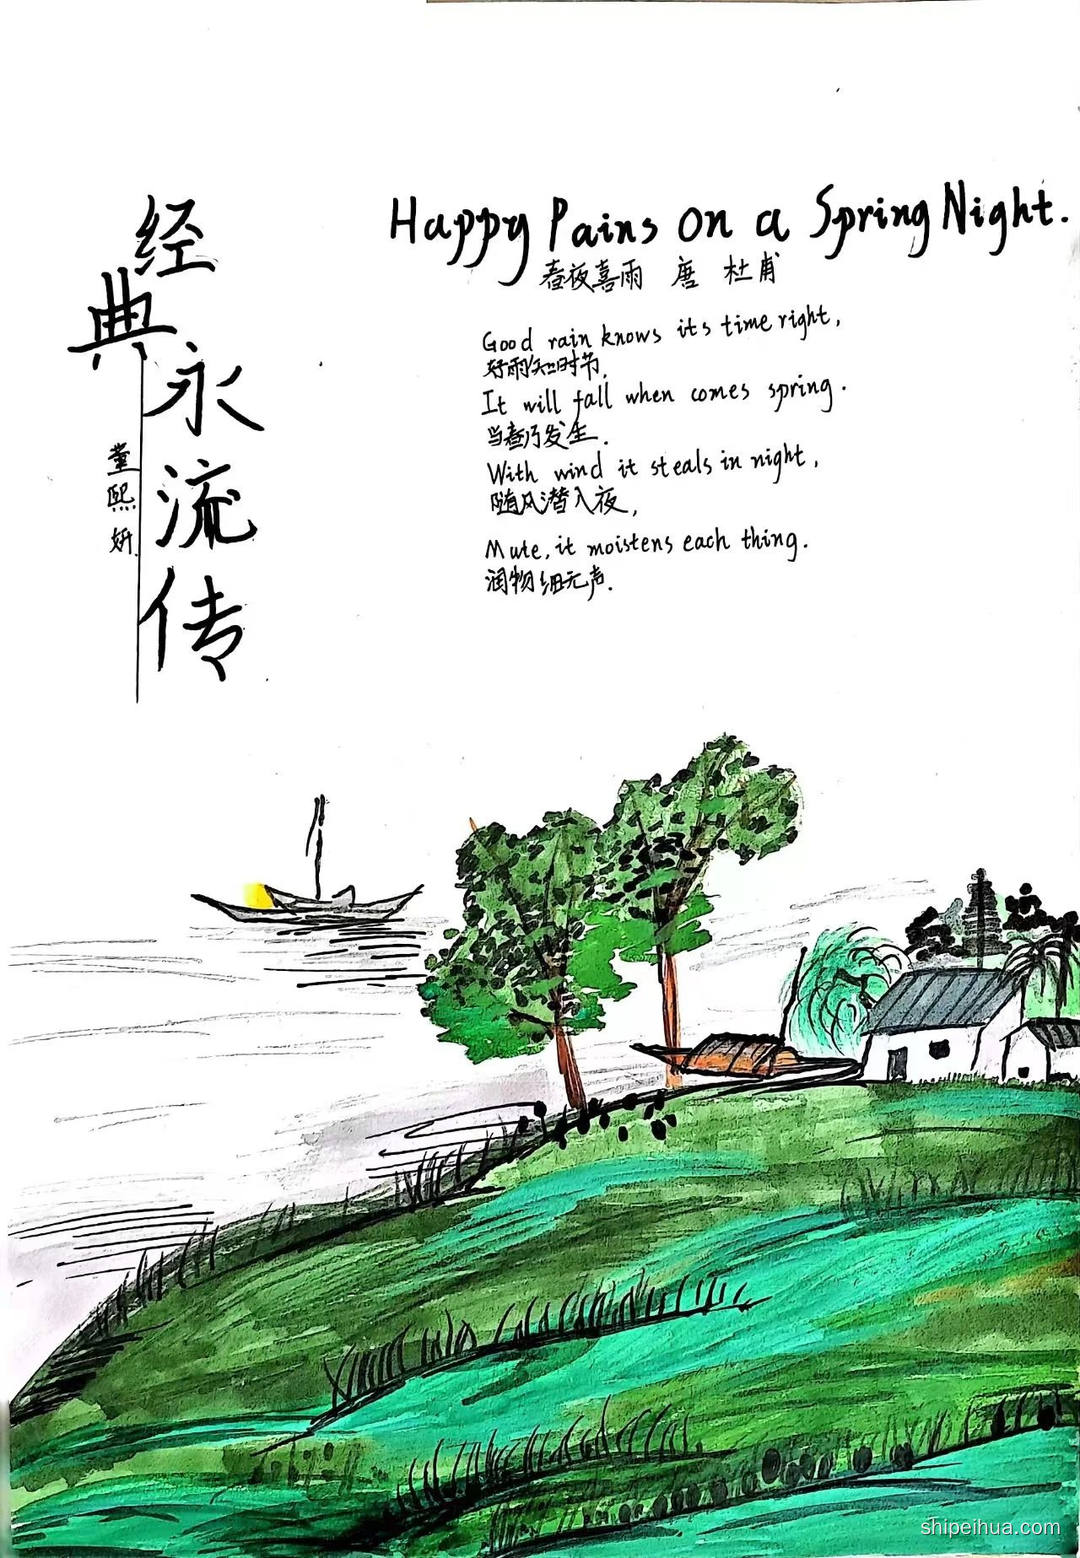 经典永流传
董熙妍
Happy Pains on a Spring Night.
春夜喜雨 唐 杜甫
Good rain knows its time right,
好雨知时节,
It will fall when comes spring.
当春乃发生.
With wind it steals in night,
随风潜入夜,
Mute, it moistens each thing.
润物细无声.
shipeihua.com